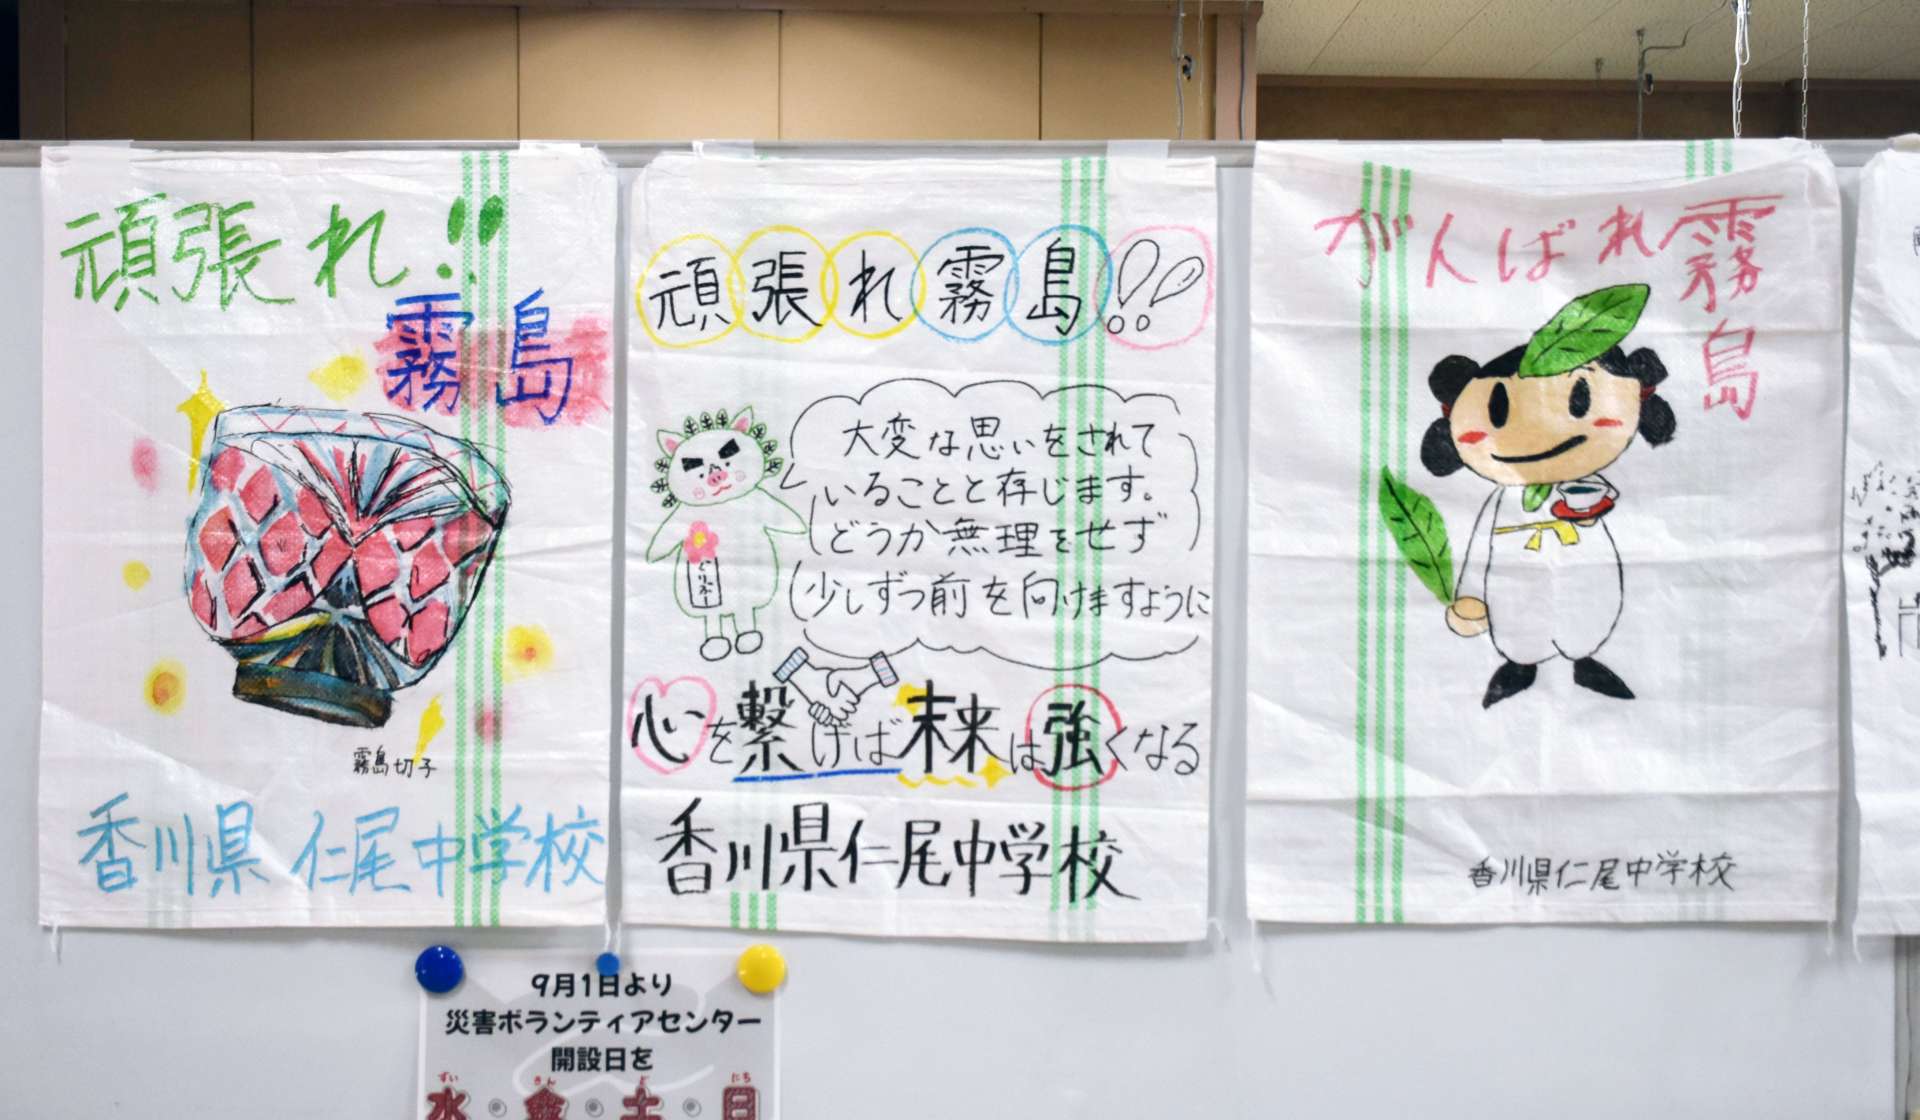 頑張れ!!
霧島
霧島切子
香川県 仁尾中学校
頑張れ霧島!!
大変な思いをされて
いることと存じます。
どうか無理をせず
少しずつ前を向けますように
ぐりぶー
心を繋げば未来は強くなる
香川県仁尾中学校
がんばれ霧島
香川県仁尾中学校
9月1日より
災害ボランティアセンター
開設日を
すい きん ど にち
水・金・土・日